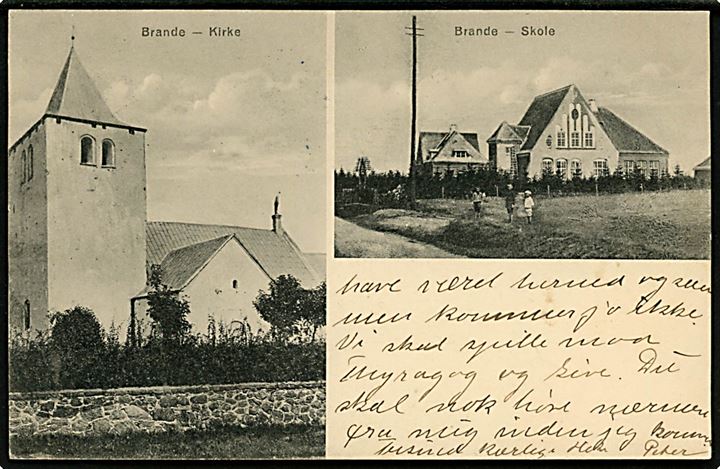 Brande – Kirke
Brande – Skole
have været herned og saa
men kommer jo ikke.
Vi skal spille mod
og Give. Du
skal nok høre nærmere
fra mig inden jeg kommer
kærlig Peter